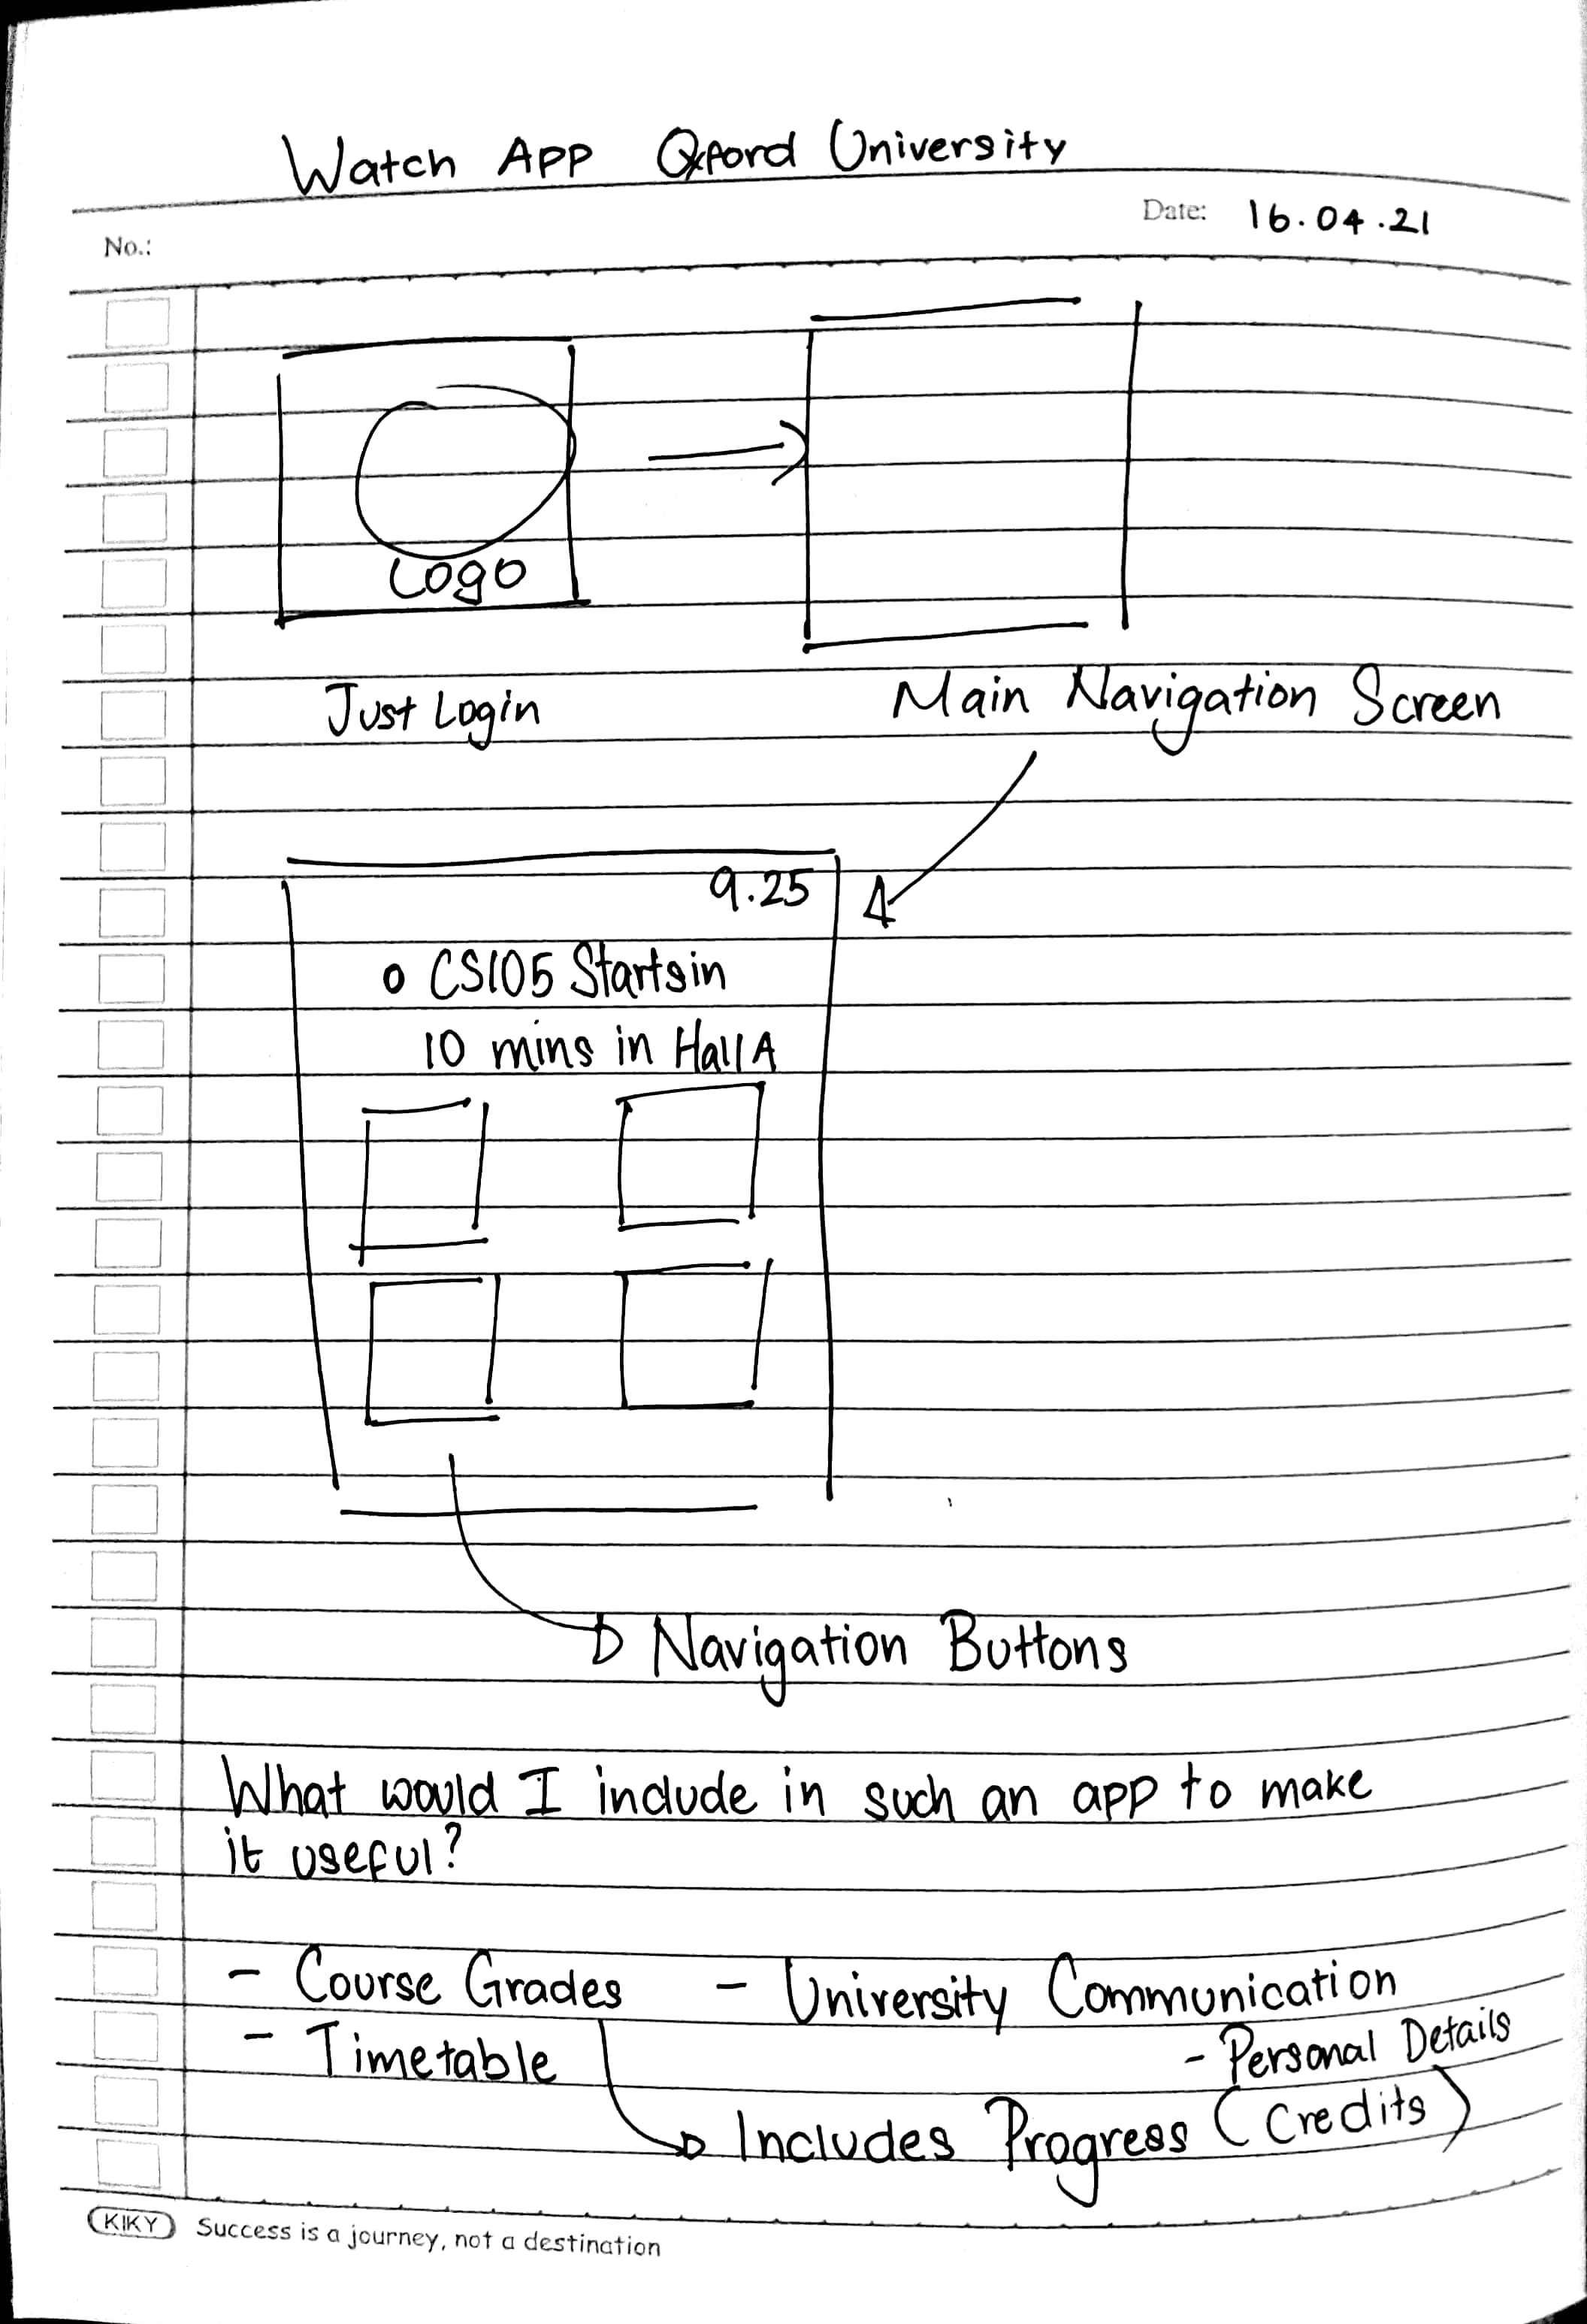 Watch App Oxford University
Date: 16.04.21
No.:
Logo
Just Login
Main Navigation Screen
9.25
o CS105 Starts in
10 mins in Hall A
Navigation Buttons
What would I include in such an app to make
it useful?
- Course Grades - University Communication
- Timetable - Personal Details
Includes Progress (Credits)
KIKY Success is a journey, not a destination